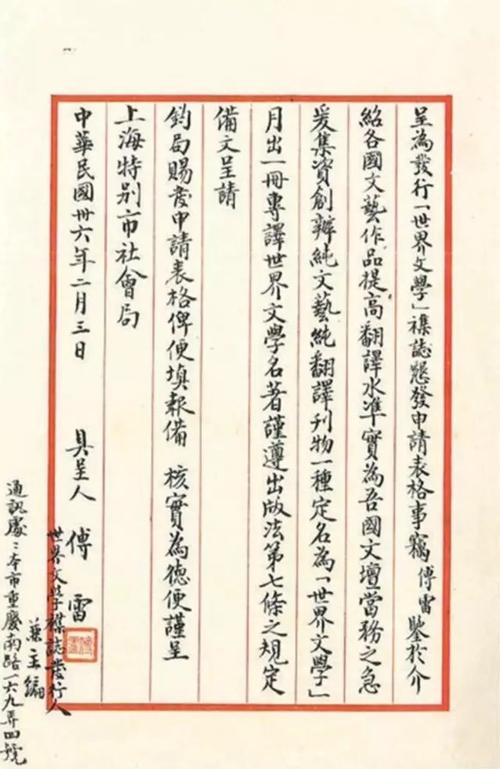 呈為發行「世界文學」襍誌懇發申請表格事竊傅雷鑒於介
紹各國文藝作品提高翻譯水準實為吾國文壇當務之急
爰集資創辦純文藝純翻譯刊物一種定名為「世界文學」
月出一冊專譯世界文學名著謹遵出版法第七條之規定
備文呈請
鈞局賜發申請表格俾便填報備 核實為德便謹呈
上海特別市社會局
中華民國卅六年二月三日 具呈人 傅雷
世界文學襍誌發行人
兼主編
通訊處：本市重慶南路一六九弄四號